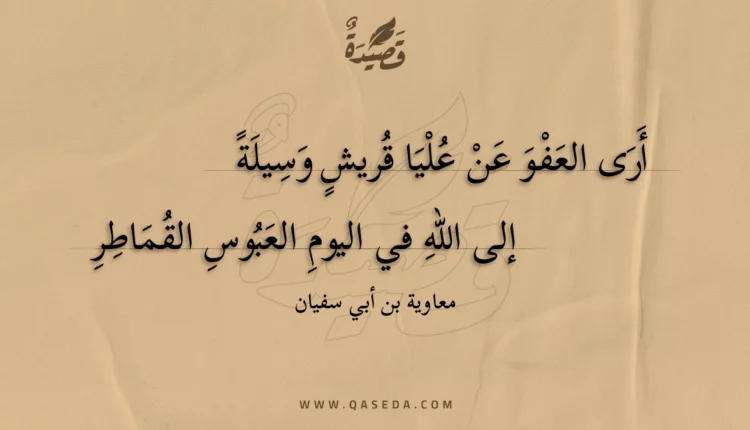 قَصِيْدَةٌ
أَرَى العَفْوَ عَنْ عُلْيَا قُريشٍ وَسِيلَةً
إلى اللهِ في اليومِ العَبُوسِ القُمَاطِرِ
معاوية بن أبي سفيان
WWW.QASEDA.COM